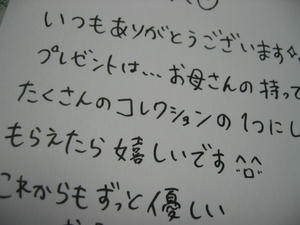 いつもありがとうございます
プレゼントは…お母さんの持って
たくさんのコレクションの1つにし
もらえたら嬉しいです
これからもずっと優しい